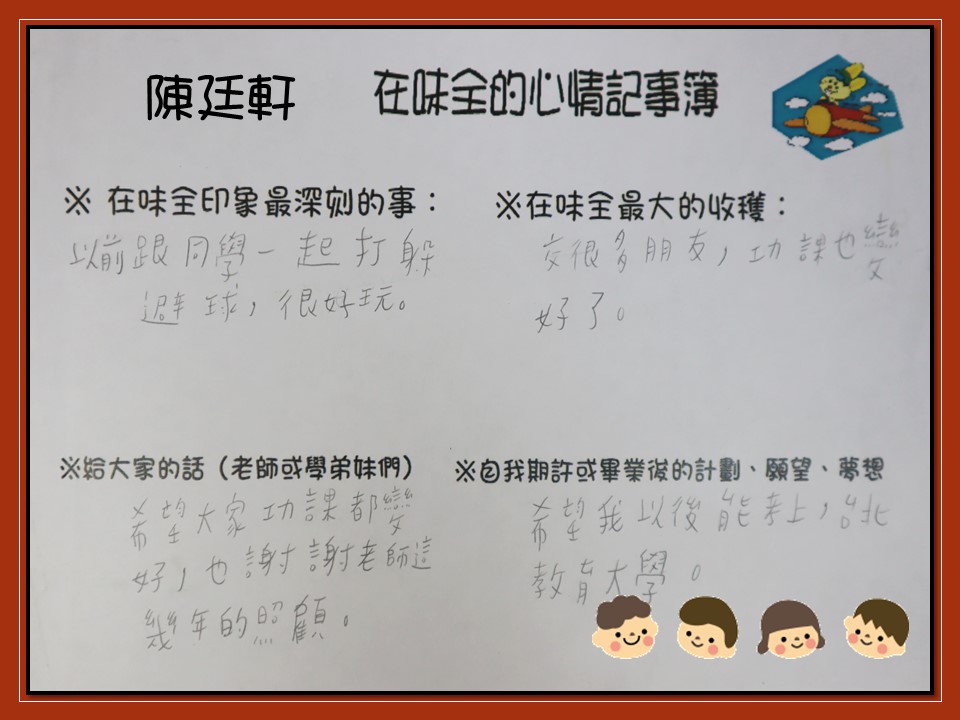 陳廷軒
在味全的心情記事簿
※ 在味全印象最深刻的事：
以前跟同學一起打躲
避球，很好玩。
※在味全最大的收穫：
交很多朋友，功課也變
好了。
※給大家的話（老師或學弟妹們）
希望大家功課都變
好，也謝謝老師這
幾年的照顧。
※自我期許或畢業後的計劃、願望、夢想
希望我以後能考上，台北
教育大學。